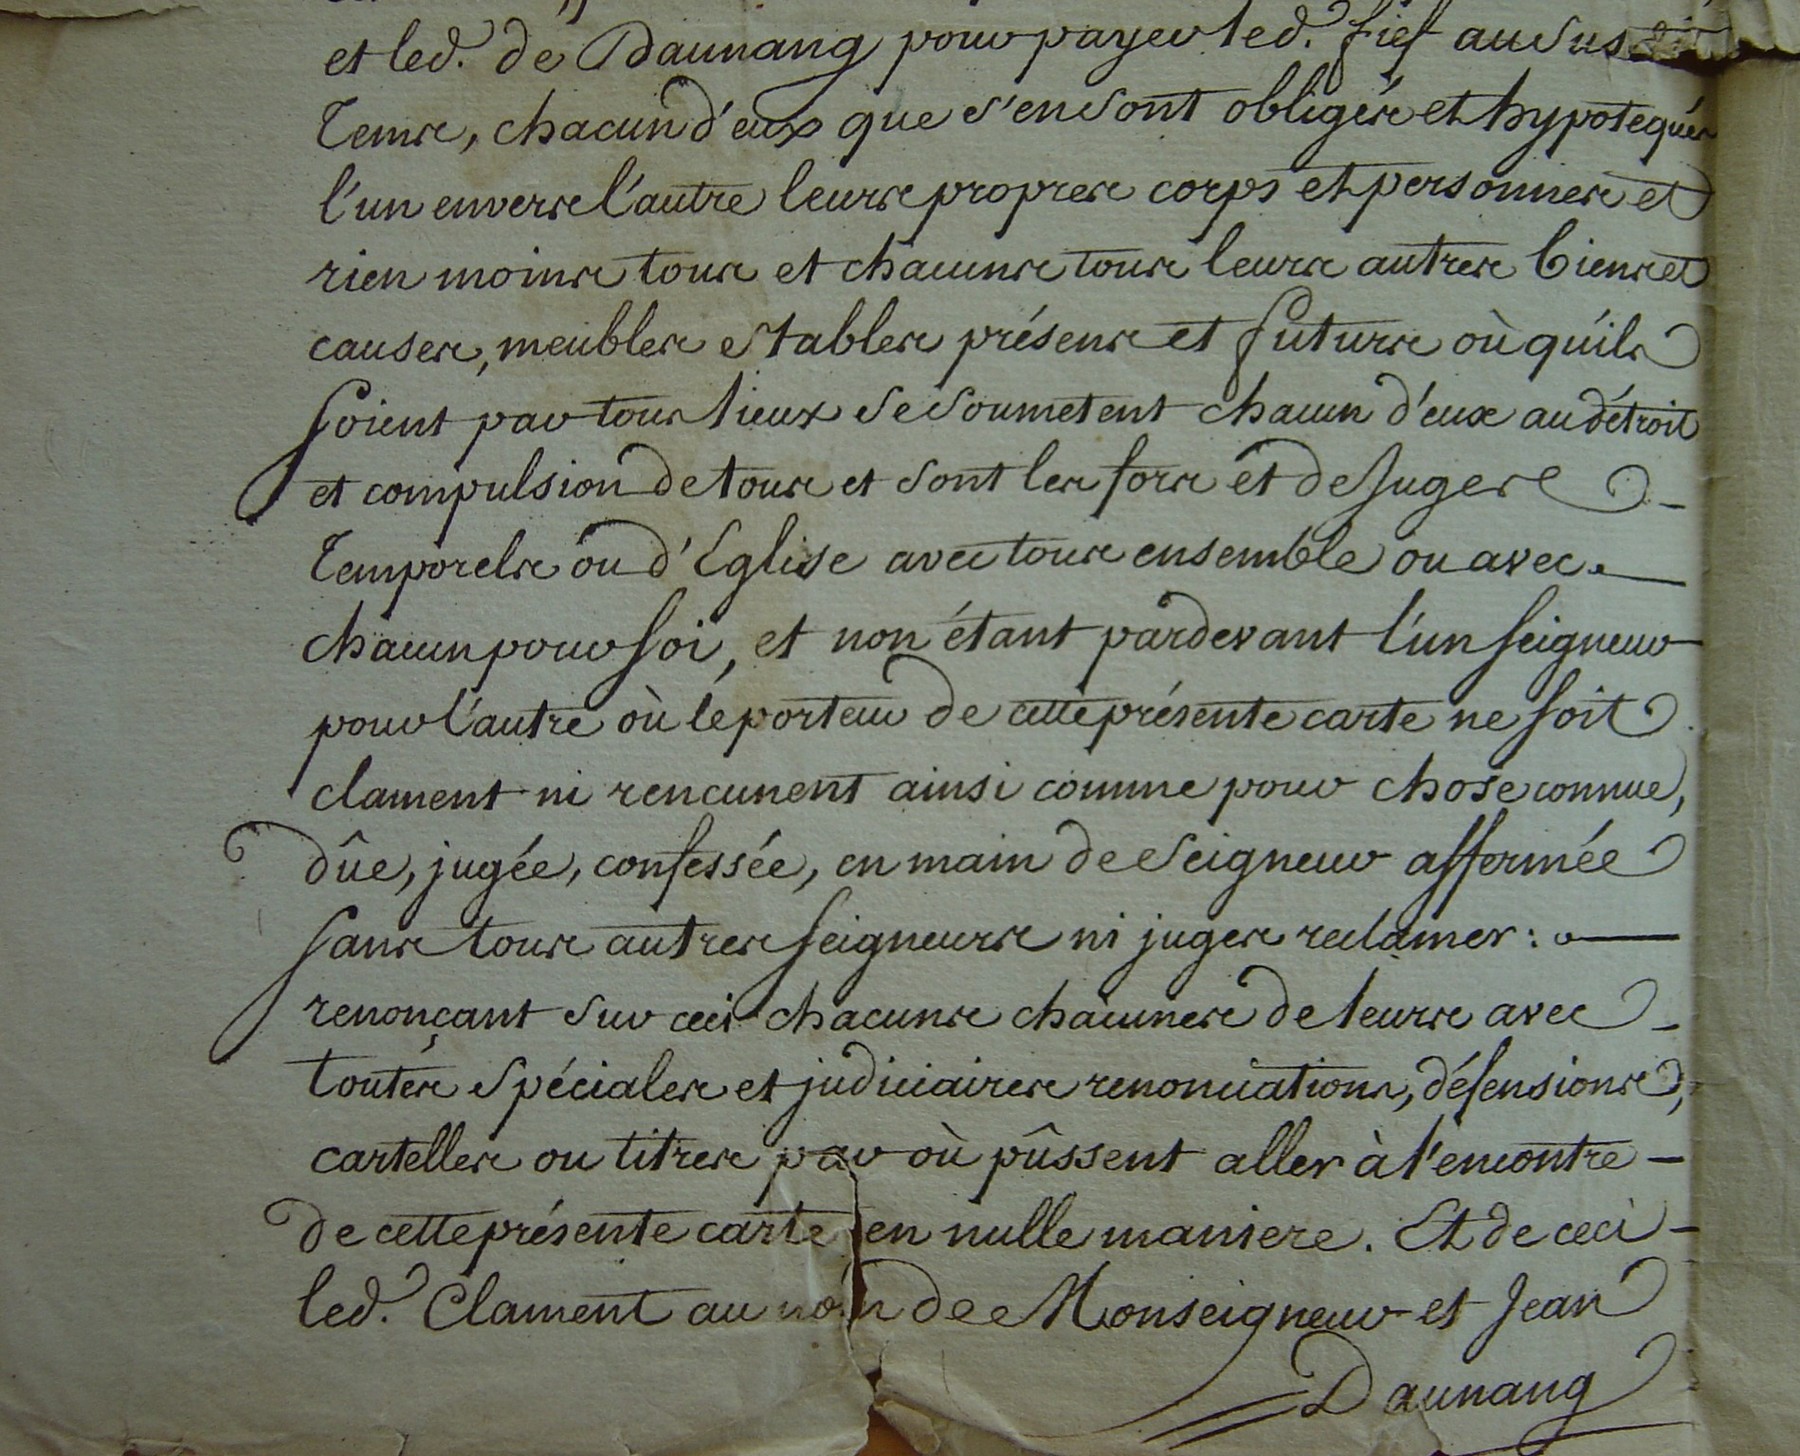 et led. de Daunang pour payer led. fief au susdit
tems, chacun d'eux que s'en sont obligés et hypotequés
l'un envers l'autre leurs propres corps et personnes et
rien moins tous et chacuns tous leurs autres biens et
causes, meubles estables présens et futurs où qu'ils
soient par tous lieux se soumetent chacun d'eux au détroit
et compulsion de tous et sont les fors et de Juges
Temporels ou d'Eglise avec tous ensemble ou avec
chacun pour soi, et non étant pardevant l'un seigneur
pour l'autre où le porteur de cette présente carte ne soit
clament ni rencunent ainsi comme pour chose connue,
dûe, jugée, confessée, en main de Seigneur affermée
sans tous autres seigneurs ni juges reclamer :
renonçant sur ceci chacuns chacunes de leurs avec
toutes spéciales et judiciaires renonciations, défensions,
cartelles ou titres par où pûssent aller à l'encontre
de cette présente carte en nulle maniere. Et de ceci
led. Clament au nom de Monseigneur et Jean
Daunang